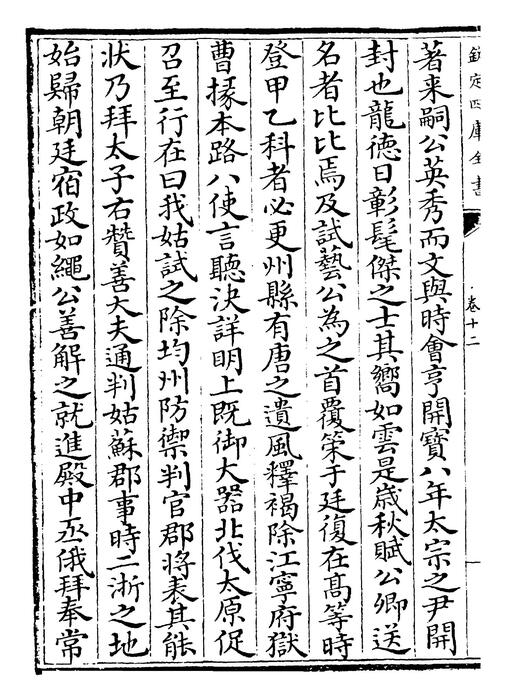 欽定四庫全書
卷十二
著来嗣公英秀而文與時會亨開寶八年太宗之尹開
封也龍德日彰髦傑之士其嚮如雲是歲秋賦公卿送
名者比比焉及試藝公為之首覆策于廷復在髙等時
登甲乙科者必更州縣有唐之遺風釋褐除江寧府獄
曹掾本路八使言聽決詳明上既御大器北伐太原促
召至行在曰我姑試之除均州防禦判官郡將表其能
状乃拜太子右贊善大夫通判姑蘇郡事時二浙之地
始歸朝廷宿政如繩公善解之就進殿中丞俄拜奉常